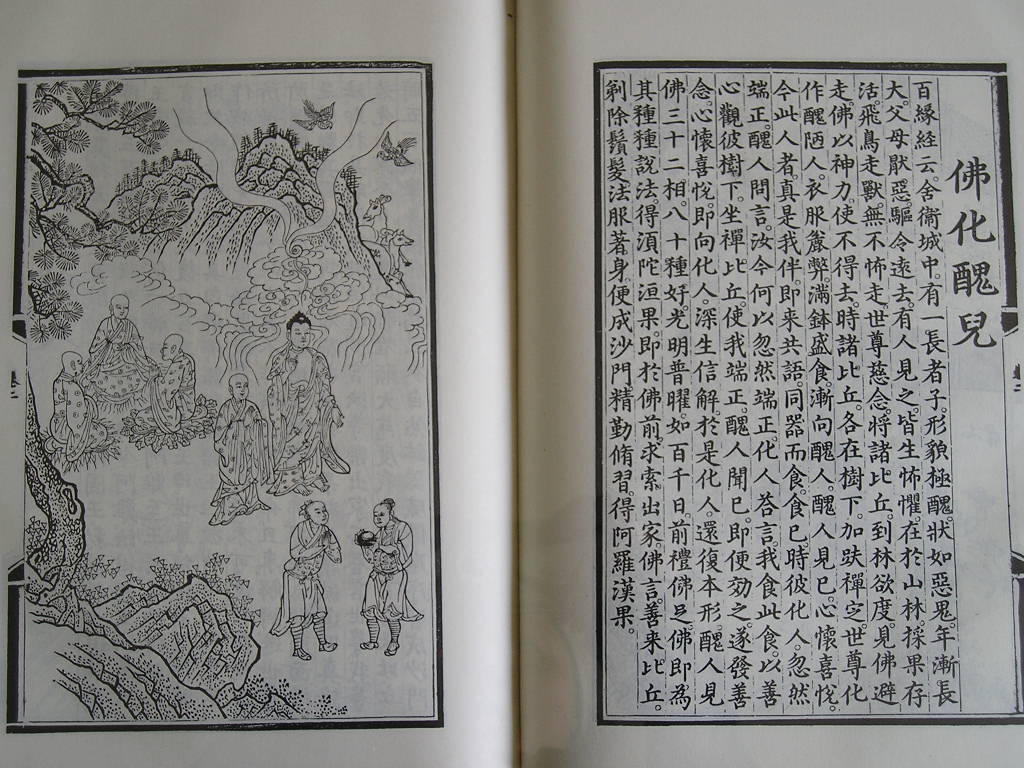 佛化醜兒
百緣経云。舍衞城中。有一長者子。形貌極醜。狀如惡鬼。年漸長
大。父母厭惡。驅令遠去。有人見之。皆生怖懼。在於山林。採果存
活。飛鳥走獸。無不怖走。世尊慈念。將諸比丘。到林欲度。見佛避
走。佛以神力。使不得去。時諸比丘。各在樹下。加趺禪定。世尊化
作醜陋人。衣服麤弊。滿鉢盛食。漸向醜人。醜人見已。心懷喜悅。
今此人者。真是我伴。即来共語。同器而食。食已時彼化人。忽然
端正。醜人問言。汝今何以忽然端正。化人荅言。我食此食。以善
心觀彼樹下。坐禪比丘。使我端正。醜人聞已。即便効之。遂發善
念。心懷喜悅。即向化人。深生信解。於是化人。還復本形。醜人見
佛三十二相。八十種好。光明普曜。如百千日。前禮佛足。佛即為
其種種說法。得湏陀洹果。即於佛前。求索出家。佛言善来比丘。
剃除鬚髮。法服著身。便成沙門。精勤脩習。得阿羅漢果。